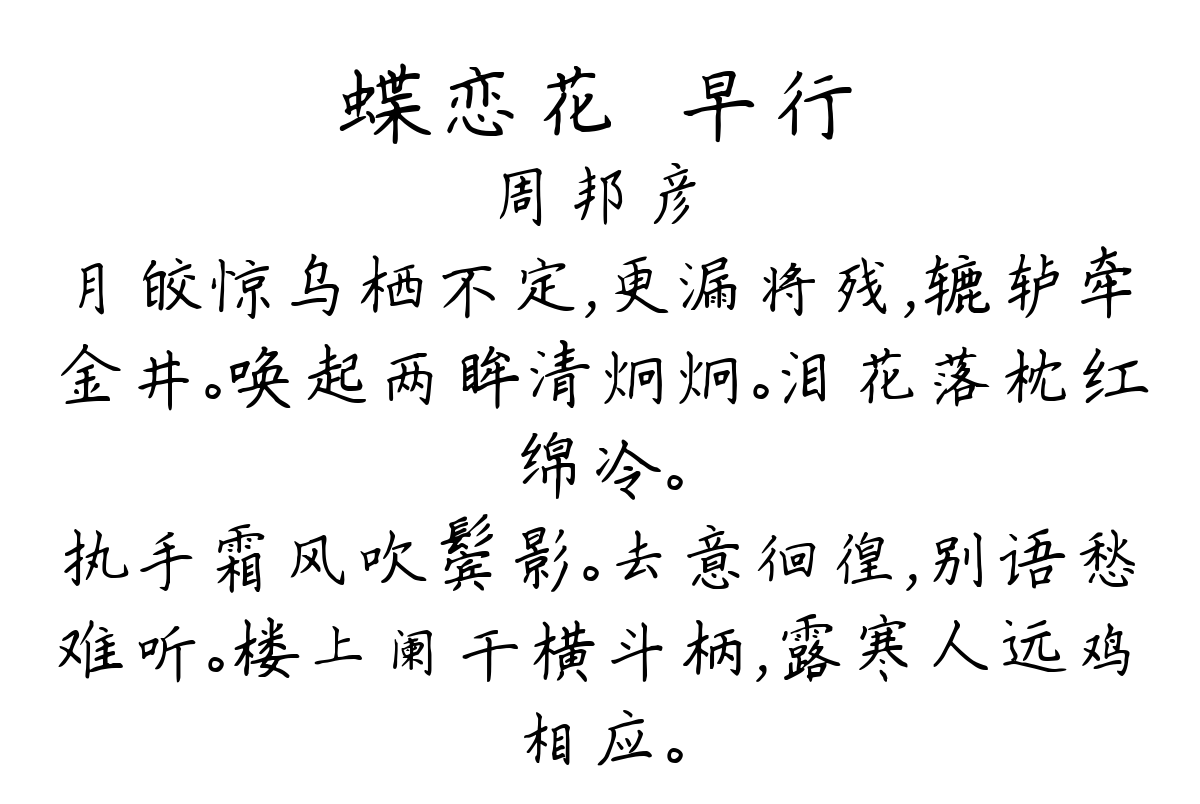 蝶恋花 早行
周邦彦
月皎惊乌栖不定,更漏将残,辘轳牵
金井。唤起两眸清炯炯。泪花落枕红
绵冷。
执手霜风吹鬓影。去意徊徨,别语愁
难听。楼上阑干横斗柄,露寒人远鸡
相应。